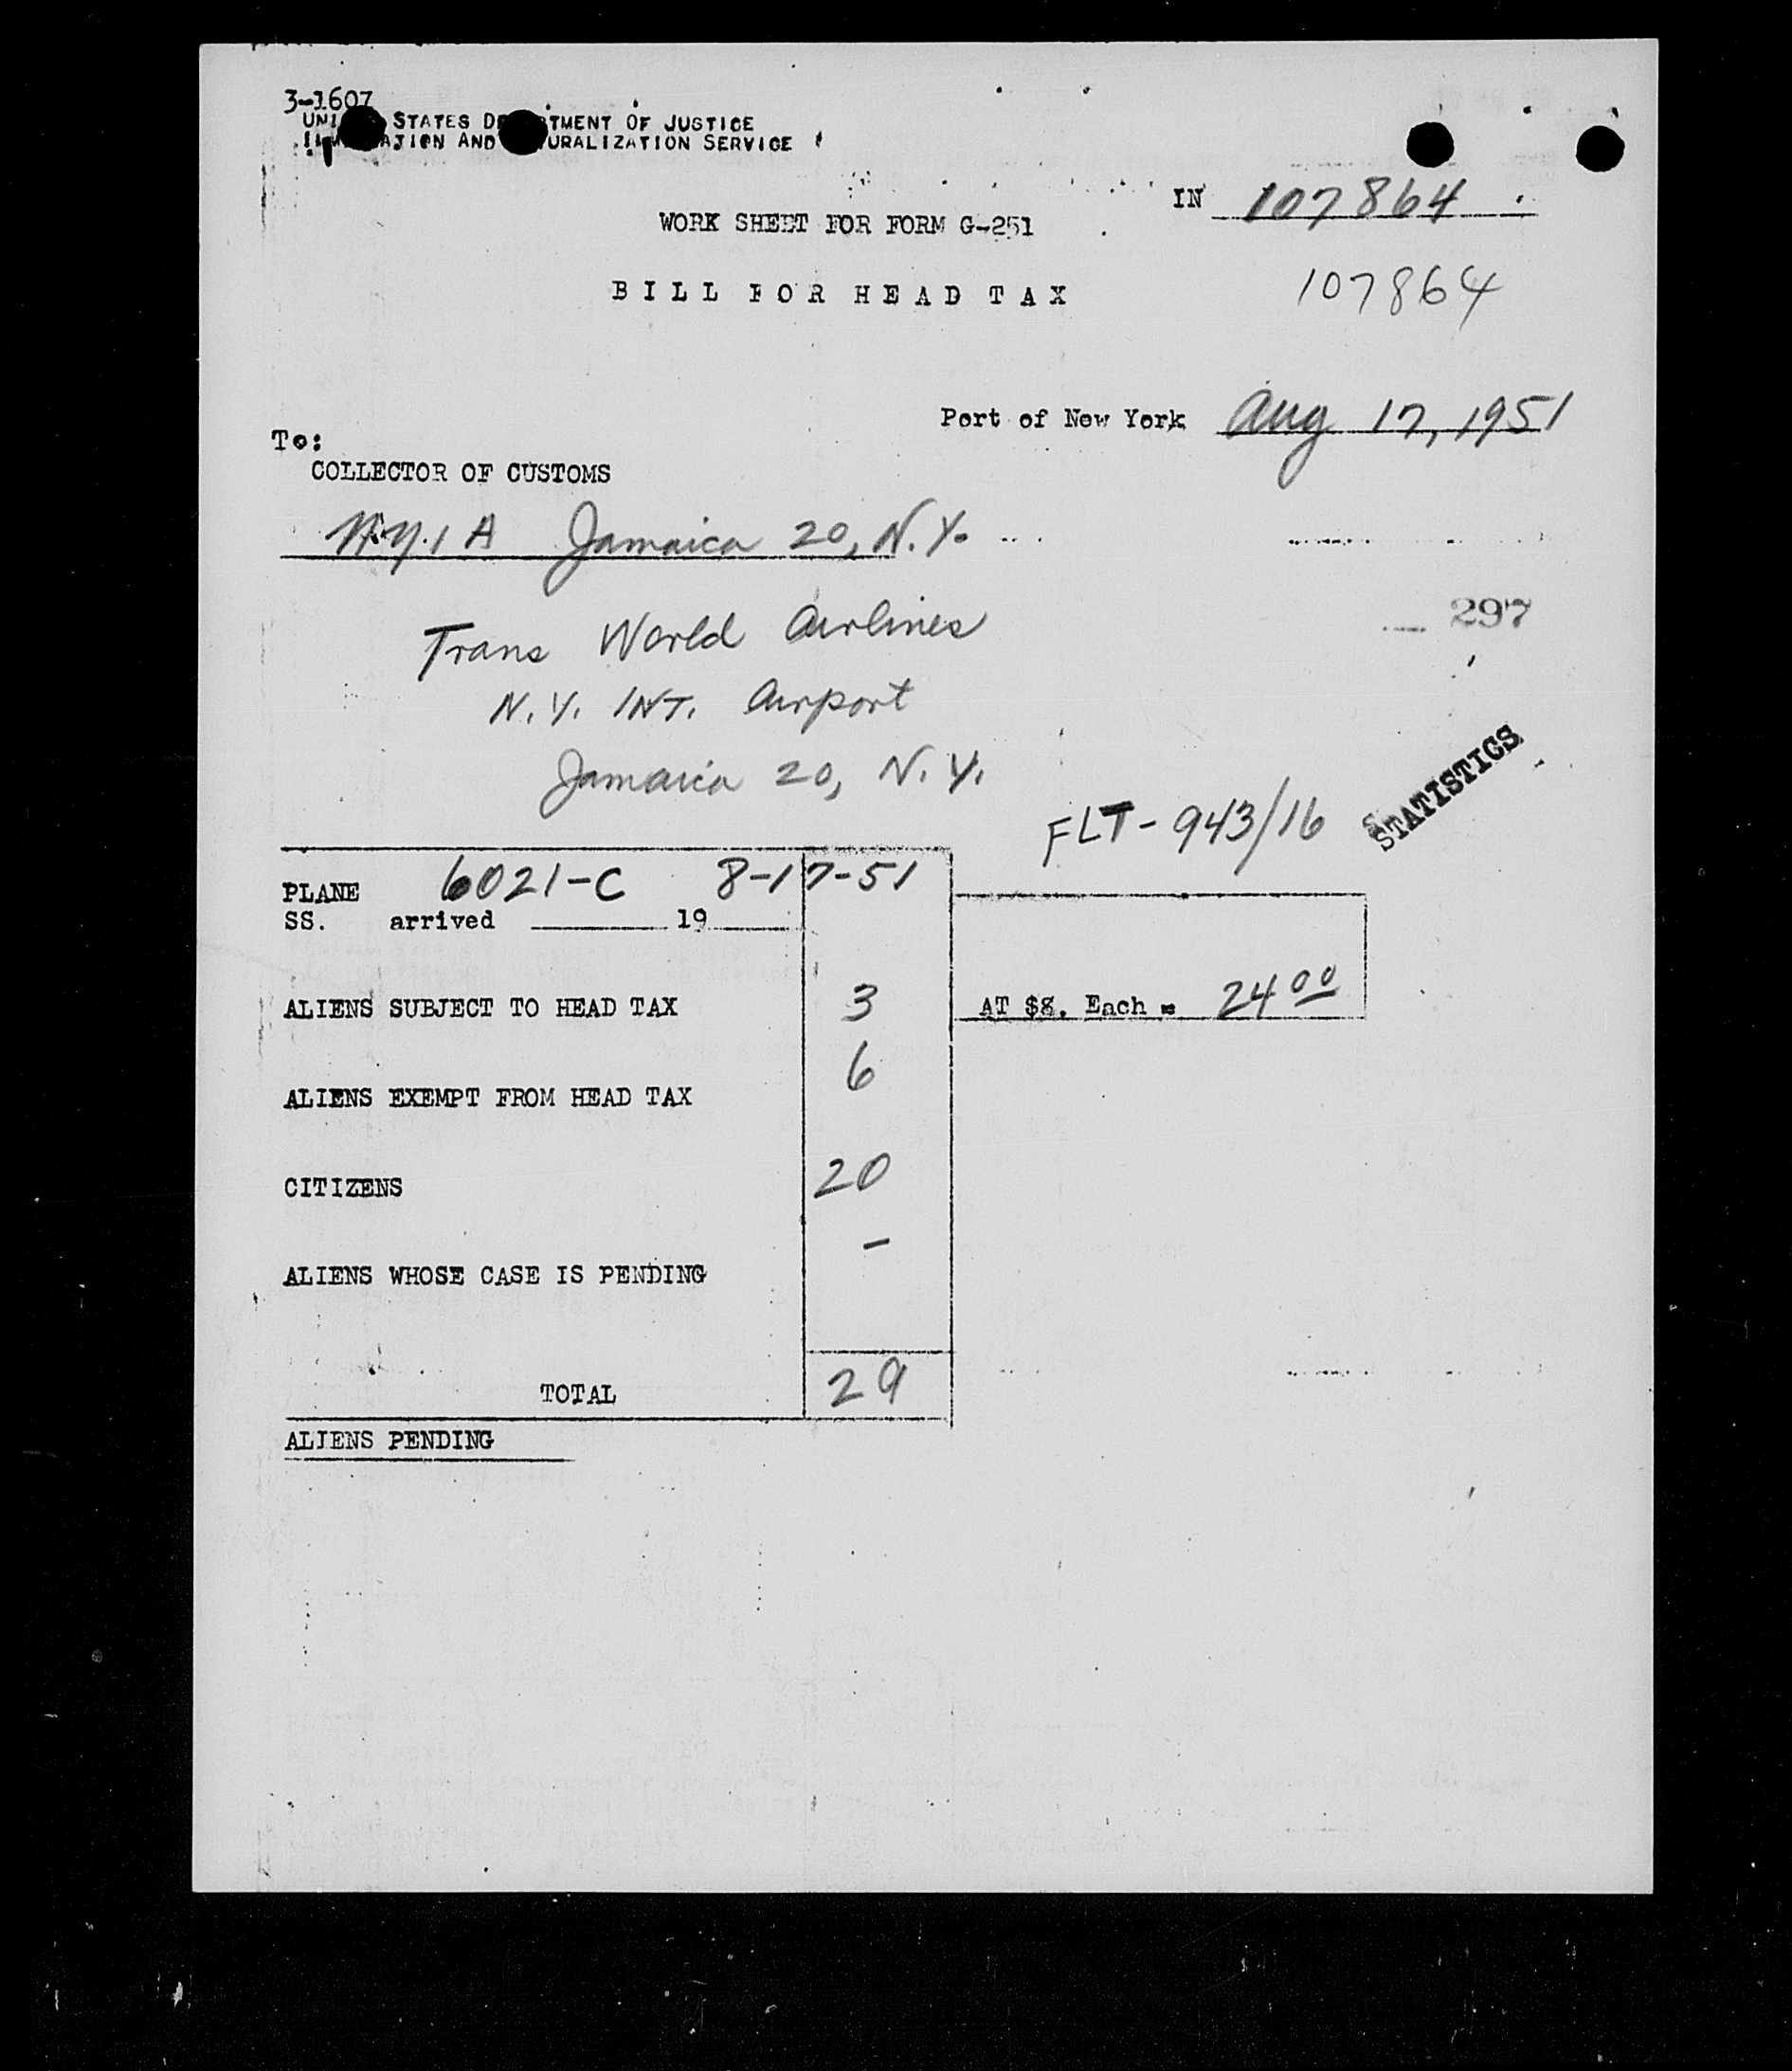 3-1607
UNI STATES DE TMENT OF JUSTICE
ATION AND URALIZATION SERVICE
IN 107864
WORK SHEET FOR FORM G-251
BILL FOR HEAD TAX
107864
Port of New York Aug 17, 1951
To:
COLLECTOR OF CUSTOMS
N.Y.I A Jamaica 20, N.Y.
Trans World Airlines
297
N.Y. INT. Airport
Jamaica 20, N.Y.
STATISTICS
FLT-943/16
PLANE 6021-C 8-17-51
SS. arrived 19
ALIENS SUBJECT TO HEAD TAX 3 AT $8. Each = 24 00
ALIENS EXEMPT FROM HEAD TAX 6
CITIZENS 20
ALIENS WHOSE CASE IS PENDING -
TOTAL 29
ALIENS PENDING